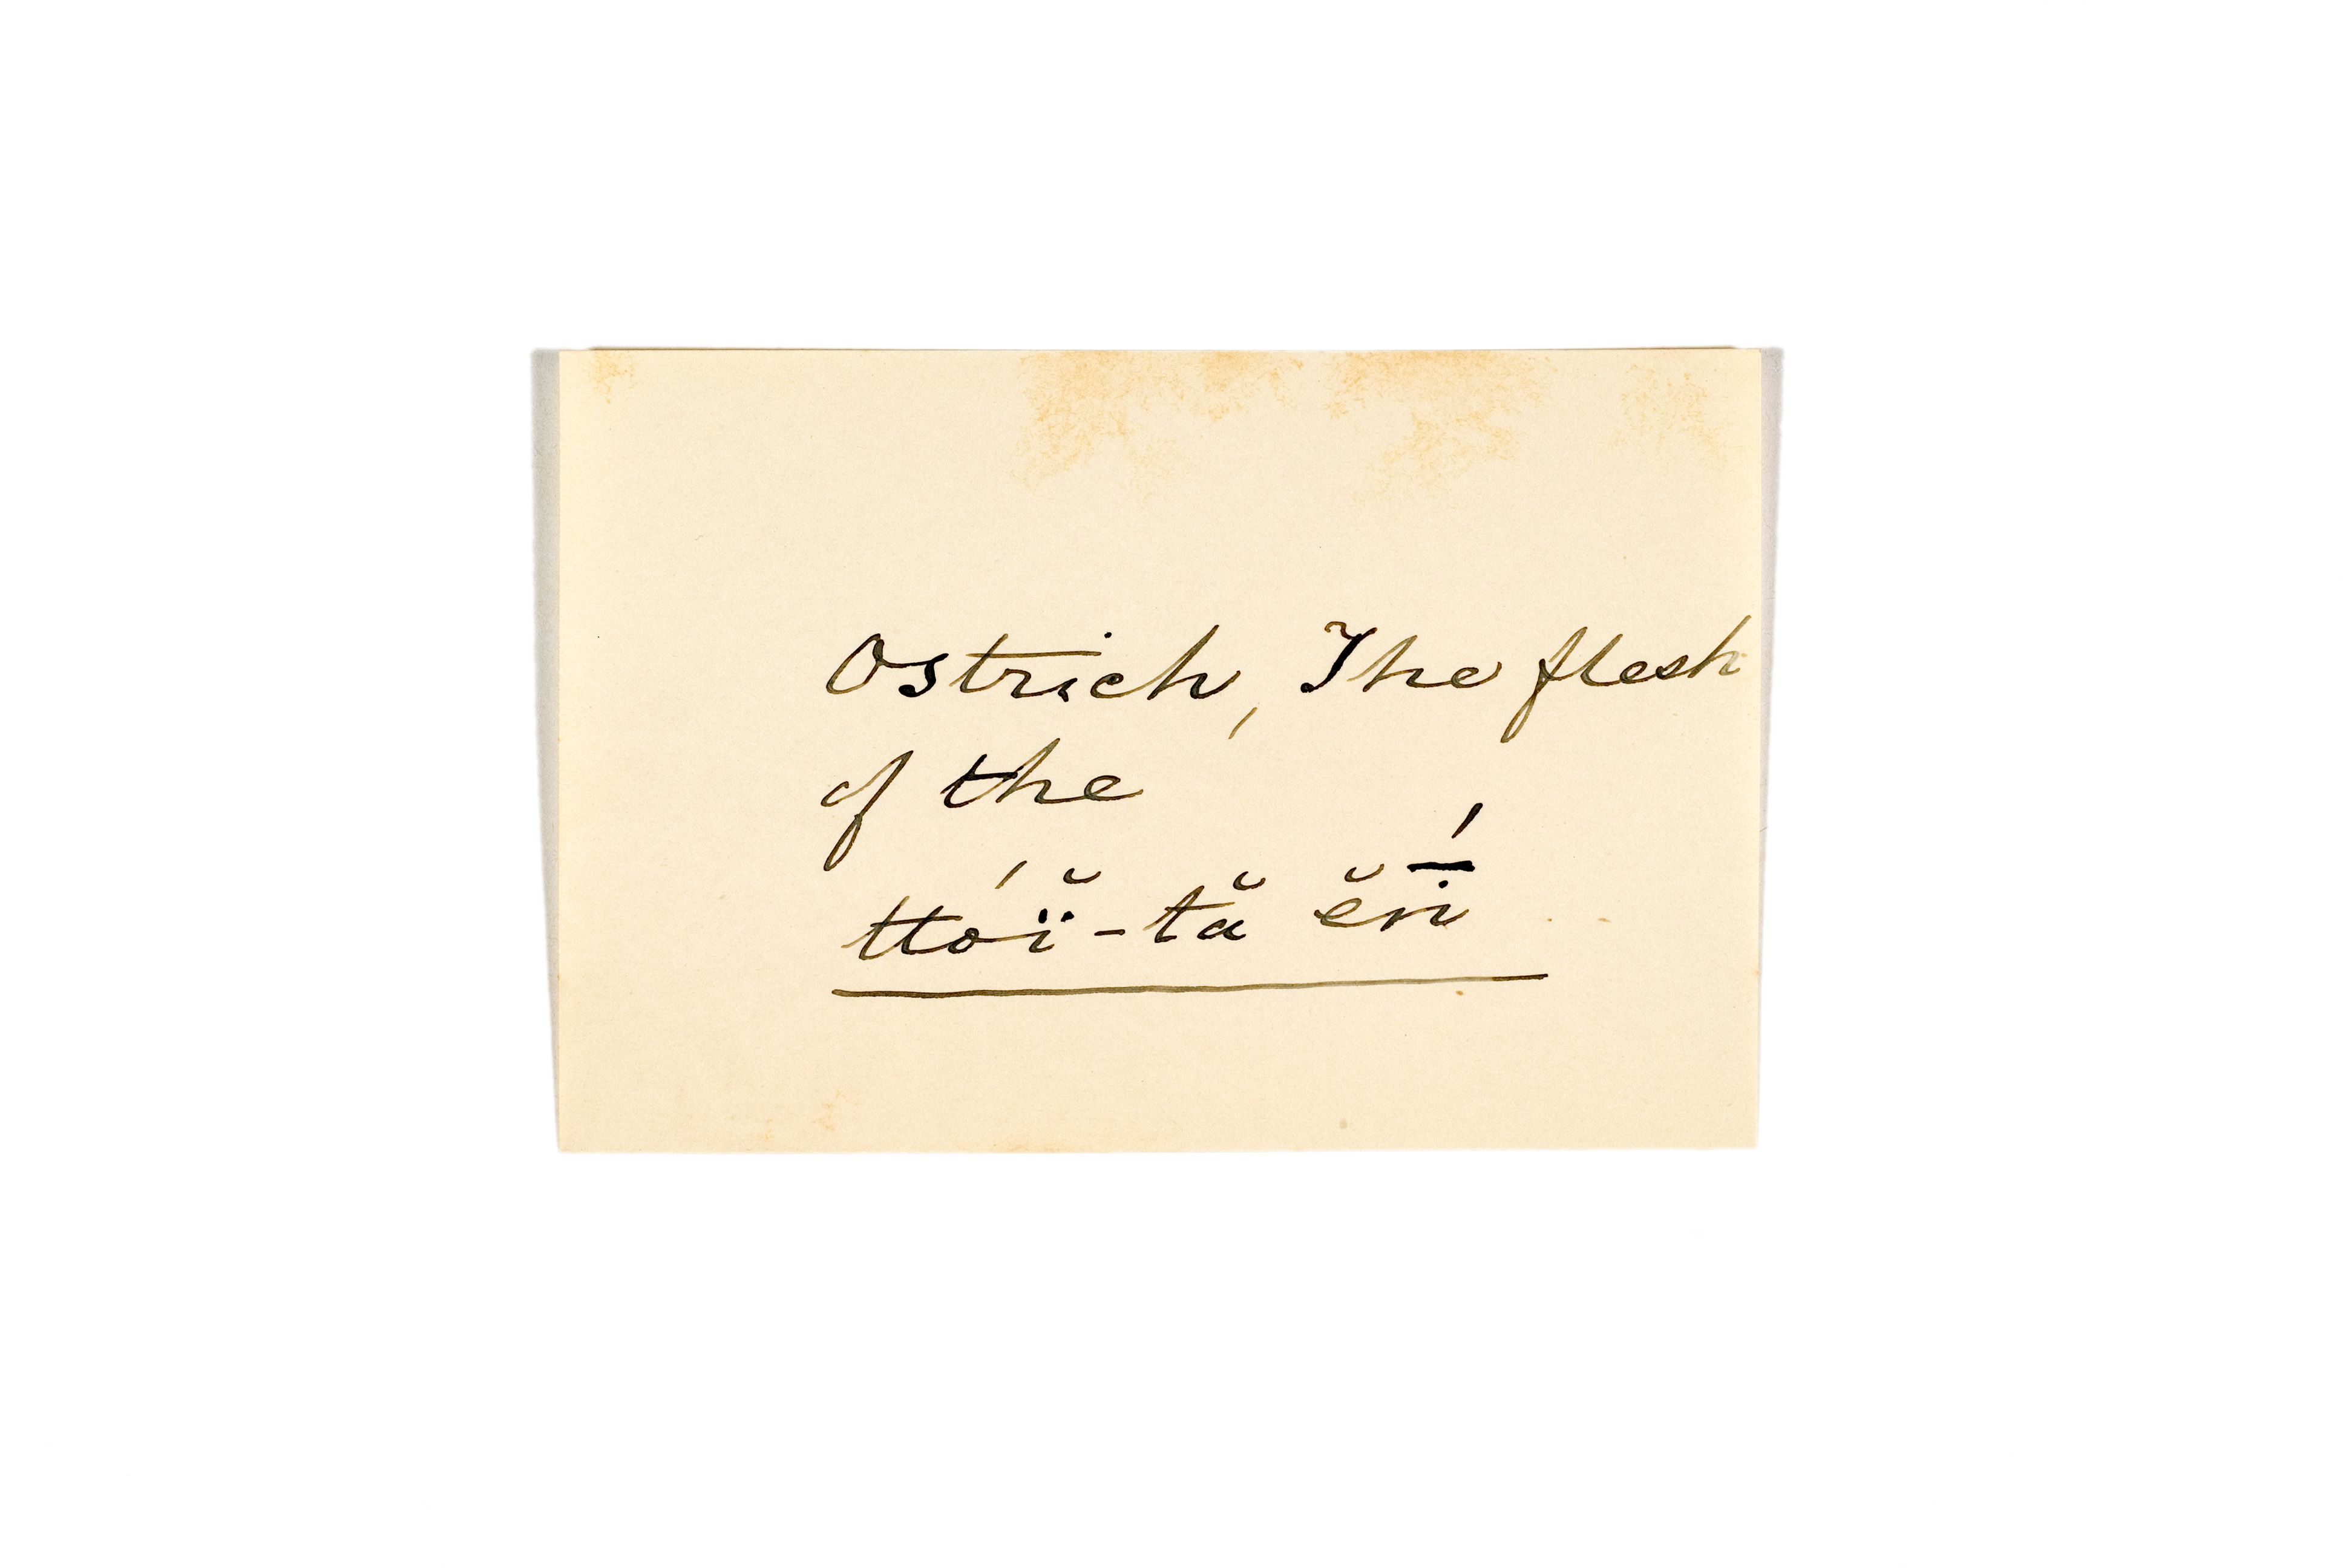 Ostrich, The flesh
of the
ttóï̆-tă ĕnī́